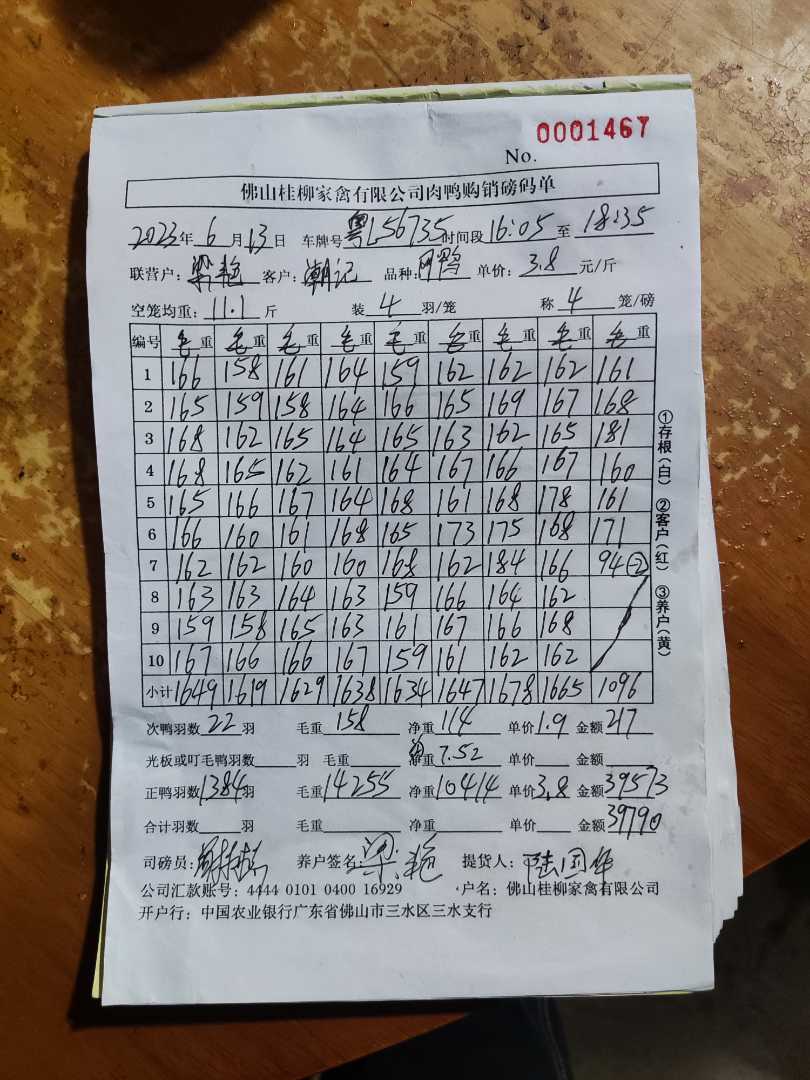 No. 0001467
佛山桂柳家禽有限公司肉鸭购销磅码单
2023年 6 月 13 日 车牌号 粤L56735 时间段 16:05 至 18:35
联营户: 梁艳 客户: 潮记 品种: 鸭 单价: 3.8 元/斤
空笼均重: 11.1 斤 装 4 羽/笼 称 4 笼/磅
编号 毛重 毛重 毛重 毛重 毛重 毛重 毛重 毛重 毛重
1 166 158 161 164 159 162 162 162 161
2 165 159 158 164 166 165 169 167 168
3 168 162 165 164 165 163 162 165 181
4 168 165 162 161 164 167 166 167 160
5 165 166 167 164 168 161 168 178 161
6 166 160 161 168 165 173 175 168 171
7 162 162 160 160 168 162 184 166 94 -2
8 163 163 164 163 159 166 164 162
9 159 158 165 163 161 167 166 168
10 167 166 166 167 159 161 162 162
小计 1649 1619 1629 1638 1634 1647 1678 1665 1096
①存根(白) ②客户(红) ③养户(黄)
次鸭羽数 22 羽 毛重 158 净重 114 单价 1.9 金额 217
光板或叮毛鸭羽数 羽 毛重 净重 7.52 单价 金额
正鸭羽数 1384 羽 毛重 14255 净重 10414 单价 3.8 金额 39573
合计羽数 羽 毛重 净重 单价 金额 39790
司磅员: 养户签名: 梁艳 提货人: 陆国华
公司汇款账号: 4444 0101 0400 16929 户名: 佛山桂柳家禽有限公司
开户行: 中国农业银行广东省佛山市三水区三水支行